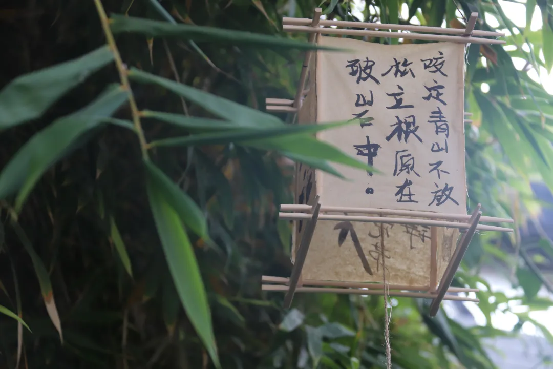 咬定青山不放
松立根原在
破岩中。